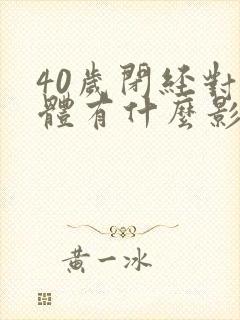 40歲閉経對
體有什麼影
黃一冰